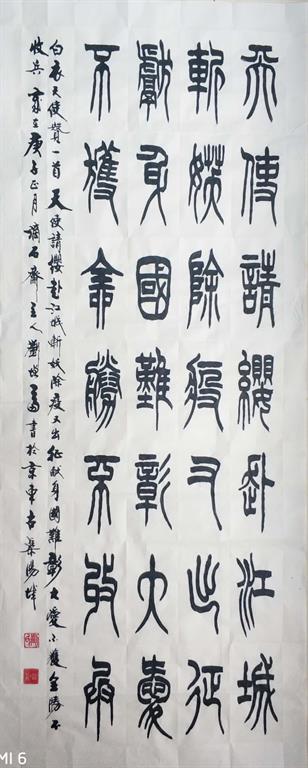 天使請纓赴江城
斬妖除疫又出征
獻身國難彰大愛
不獲全勝不收兵
白衣天使贊一首 天使請纓赴江城斬妖除疫又出征献身國難彰大愛不獲全勝不
收兵 歲在庚子正月 石齋主人劉書於京東古渠陽
MI 6